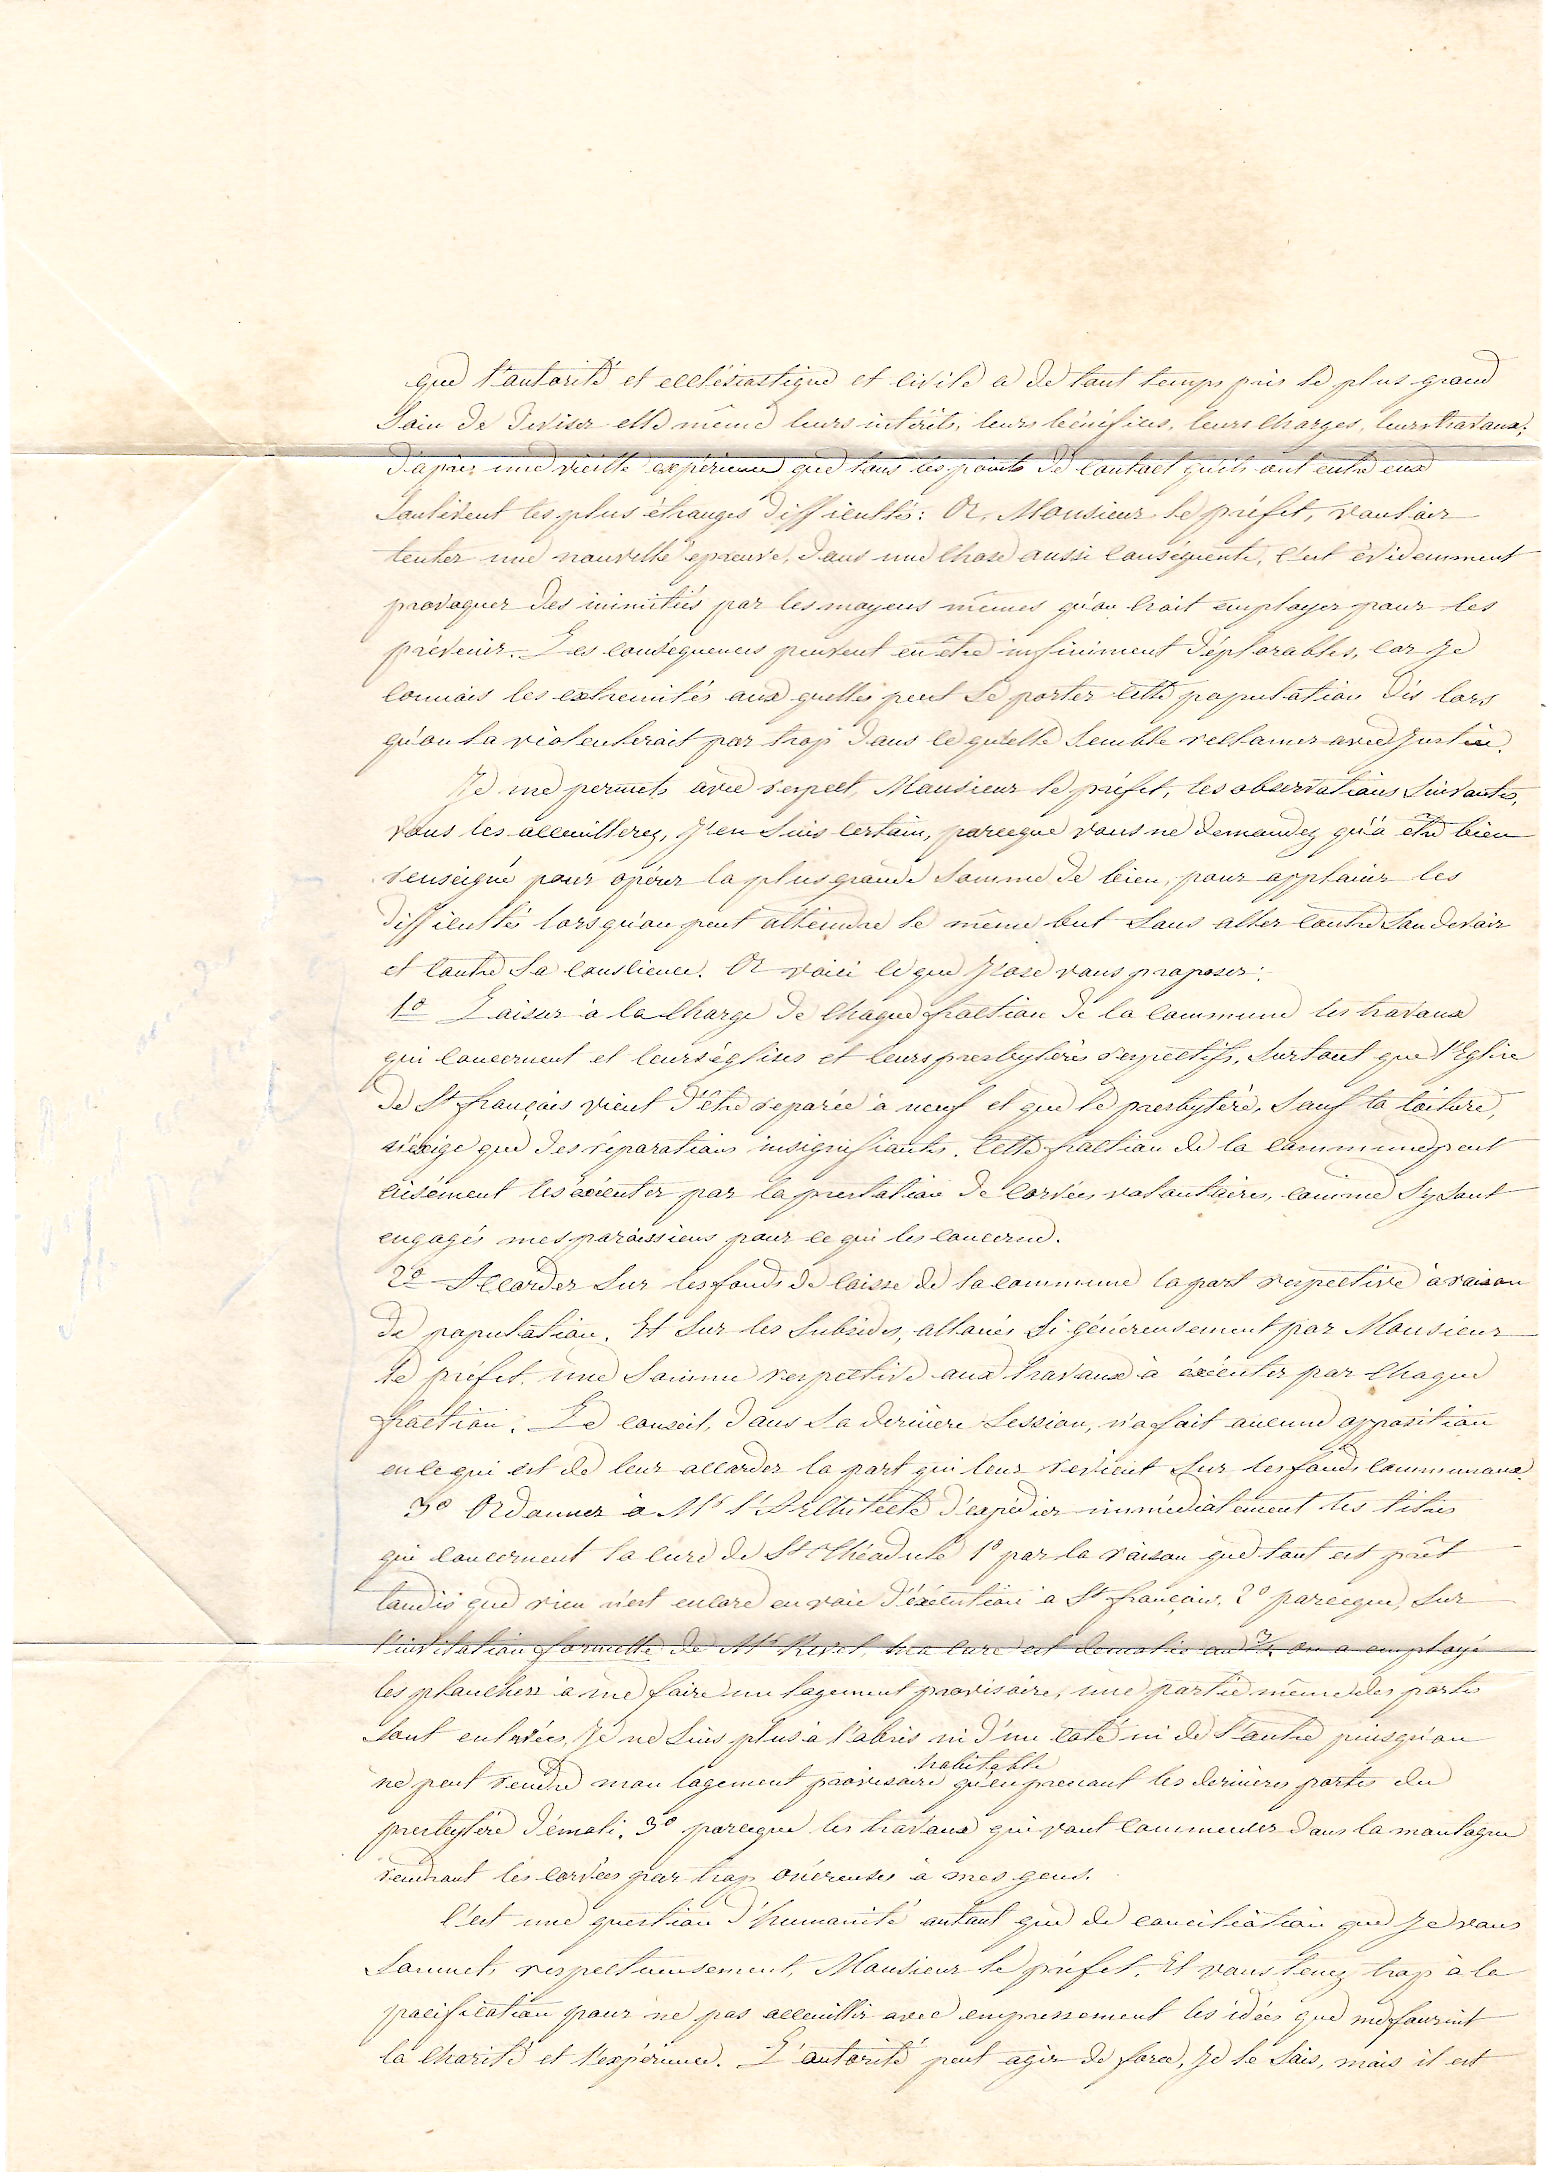 que l'autorité et ecclésiastique et civile a de tout temps pris le plus grand
soin de diviser elle même leurs intérêts, leurs bénéfices, leurs charges, leurs travaux;
d'après une vieille expérience que tous les points de contact qu'ils ont entre eux
soulèvent les plus étranges difficultés: Or, Monsieur le préfet, vouloir
tenter une nouvelle épreuve, dans une chose aussi conséquente, c'est évidemment
provoquer des inimitiés par les moyens mêmes qu'on croit employer pour les
prévenir. Les conséquences peuvent en être infiniment déplorables, car je
connais les extremités aux quelles peut se porter cette population dès lors
qu'on la violenterait par trop dans ce qu'elle semble reclamer avec justice.
Je me permets avec respect, Monsieur le préfet, les observations suivantes,
vous les acceuillerez, j'en suis certain, parceque vous ne demandez qu'à être bien
renseigné pour opérer la plus grande somme de bien, pour applanir les
difficultés lorsqu'on peut atteindre le même but sans aller contre son devoir
et contre sa conscience. Or voici ce que j'ose vous proposer:
1o Laisser à la charge de chaque fraction de la commune les travaux
qui concernent et leurs églises et leurs presbytères respectifs, surtout que l'Eglise
de St françois vient d'être reparée à neuf et que le presbytère, sauf la toiture,
n'éxige que des réparations insignifiantes. Cette fraction de la commune peut
aisément les éxécuter par la prestation de corvées volontaires, comme s'y sont
engagés mes paroissiens pour ce qui les concerne.
2o Accorder sur les fonds de caisse de la commune la part respective à raison
de population. Et sur les subsides, alloués si généreusement par Monsieur
le préfet, une somme respective aux travaux à éxécuter par chaque
fraction. Le conseil, dans sa dernière session, n'a fait aucune opposition
en ce qui est de leur accorder la part qui leur revient sur les fonds communaux.
3o Ordonner à Mr l'Architecte d'expédier immédiatement les titres
qui concernent la cure de St Théodule 1o par la raison que tout est prêt
tandis que rien n'est encore en voie d'éxécution à St françois, 2o parceque, sur
l'invitation formelle de Mr Revel, ma cure est demolie au 3/4, on a employé
les planchers à me faire un logement provisoire, une partie même des portes
sont enlevées, je ne suis plus à l'abris ni d'un coté ni de l'autre puisqu'on
habitable
ne peut rendre mon logement provisoire qu'en prenant les dernières portes du
presbytère démoli. 3o parceque les travaux qui vont commencer dans la montagne
rendront les corvées par trop onéreuses à mes gens.
C'est une question d'humanité autant que de conciliation que je vous
soumets, respectueusement, Monsieur le préfet. Et vous tenez trop à la
pacification pour ne pas acceuillir avec empressement les idées que me fournit
la charité et l'expérience. L'autorité peut agir de force, je le sais, mais il est